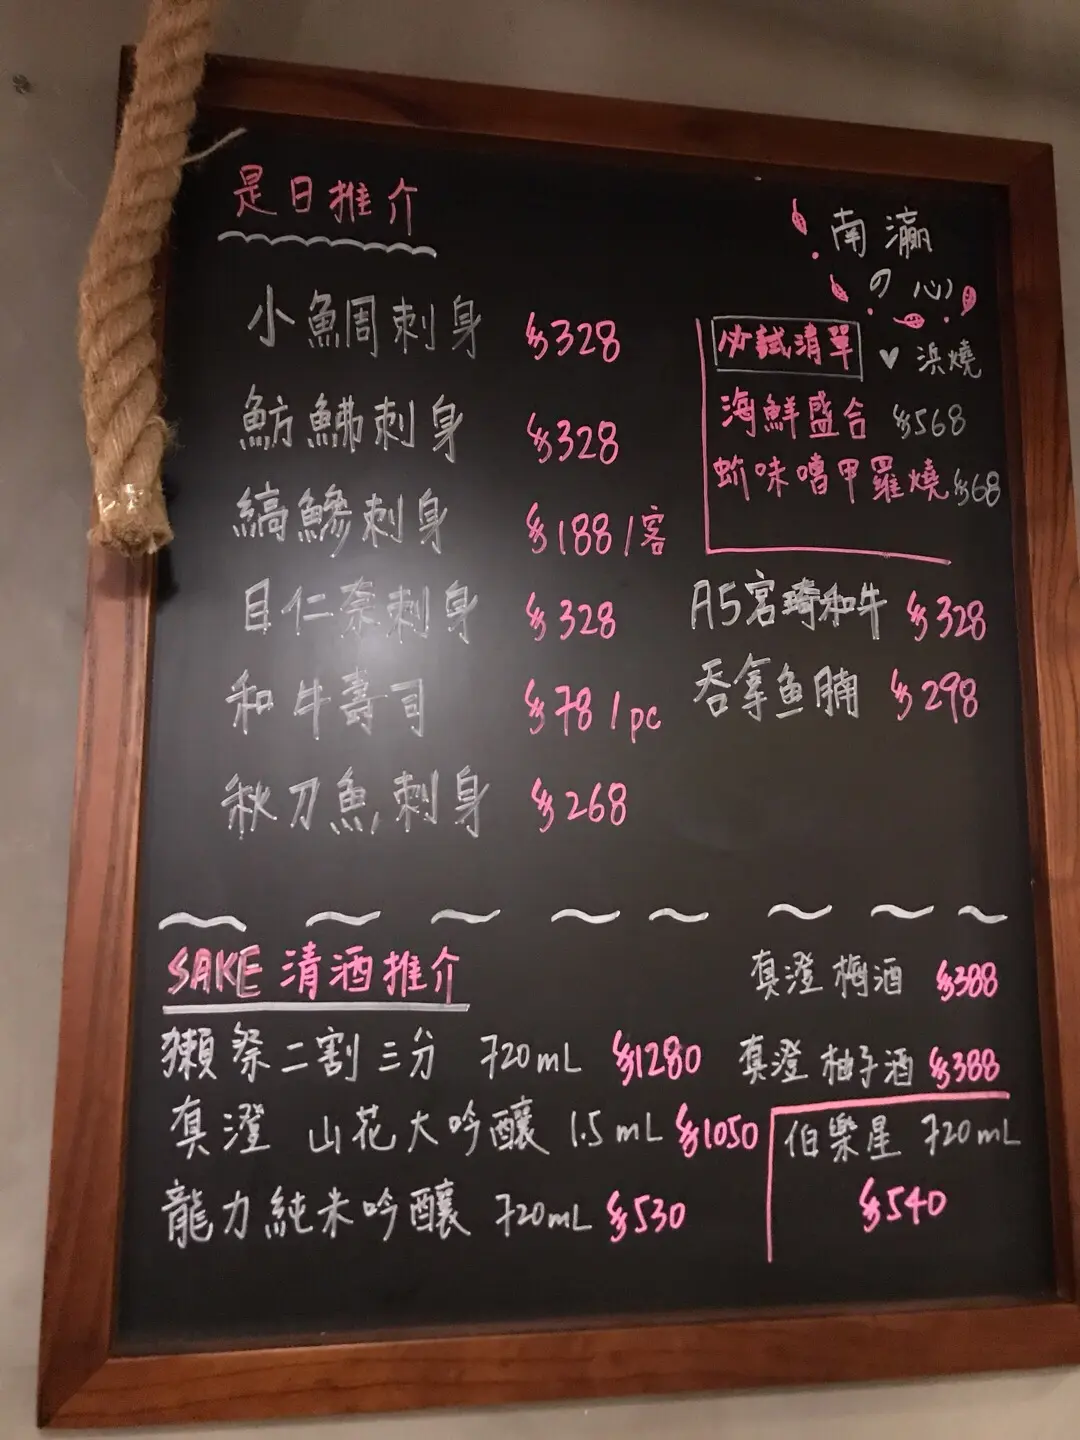 是日推介
小鯛刺身 $328
魴鮄刺身 $328
縞鰺刺身 $188/客
目仁奈刺身 $328
和牛壽司 $78/pc
秋刀魚刺身 $268
南瀛
の心
必試清單 ♥ 浜燒
海鮮盛合 $568
蚧味噌甲羅燒 $68
A5宮琦和牛 $328
吞拿鱼腩 $298
SAKE 清酒推介
獺祭二割三分 720mL $1280
真澄 山花大吟釀 1.5mL $1050
龍力純米吟釀 720mL $530
真澄梅酒 $388
真澄柚子酒 $388
伯樂星 720mL
$540